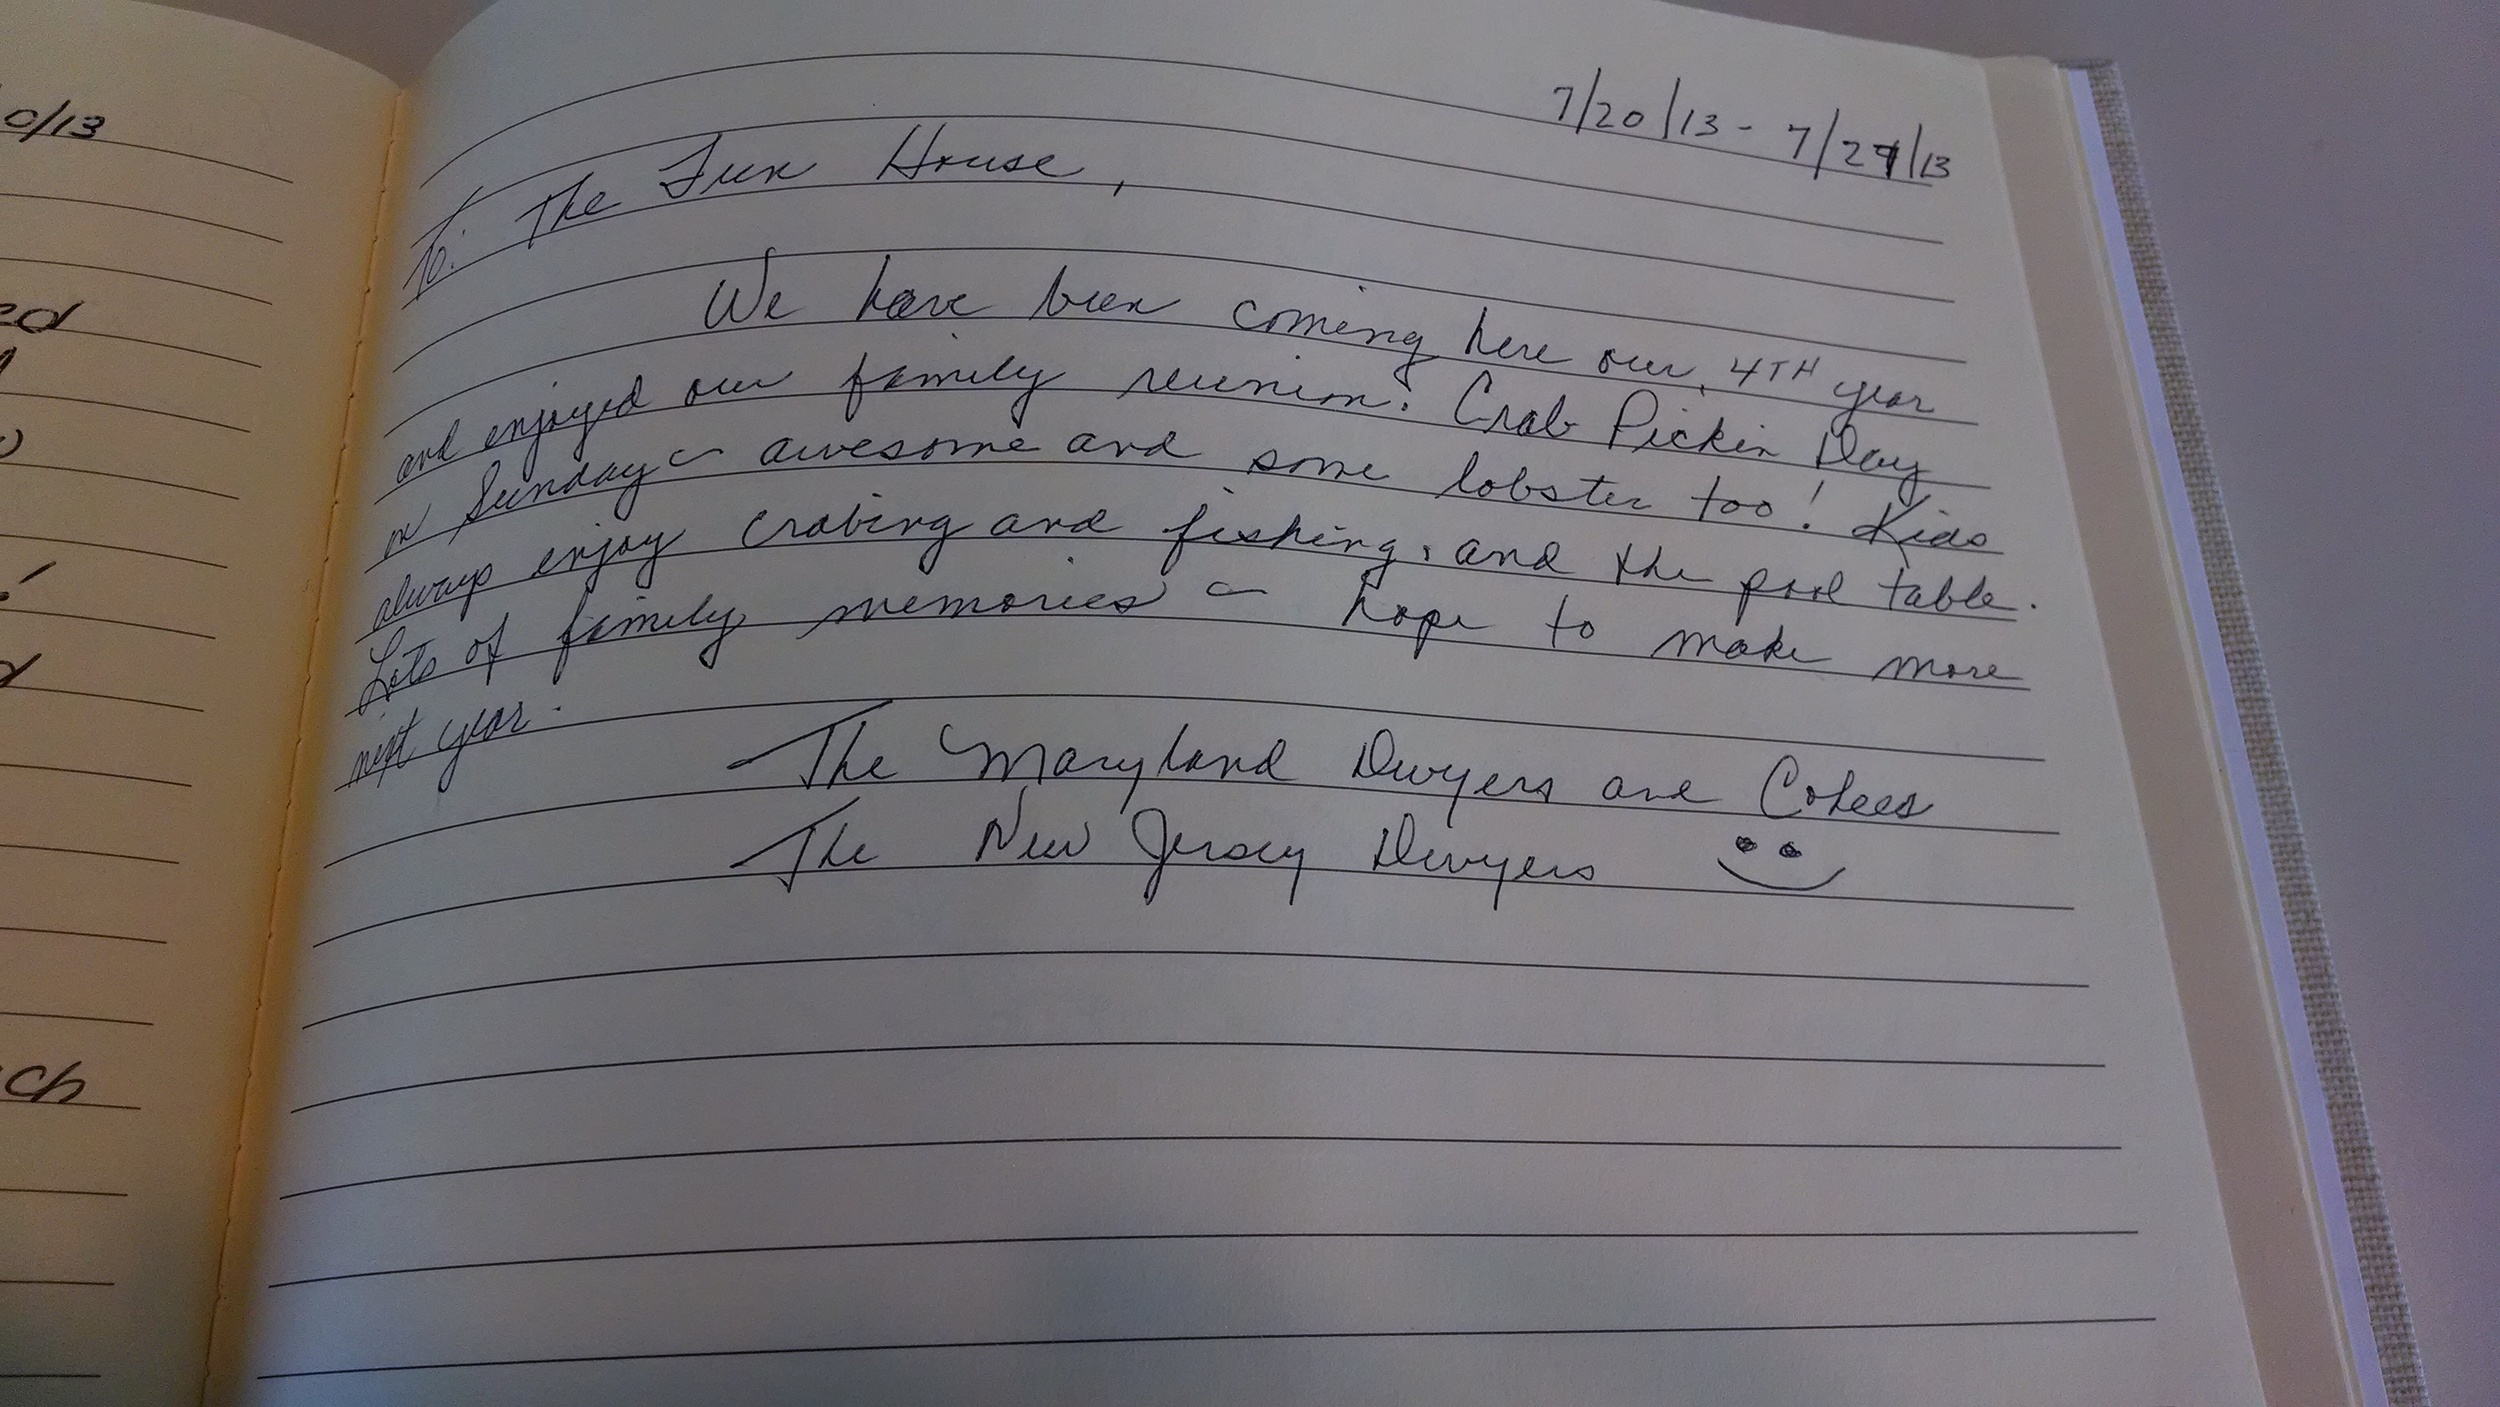 0/13
ed
ch
7/20/13 - 7/27/13
To: The Fun House,
We have been coming here our 4TH year
and enjoyed our family reunion. Crab Pickin Day
on Sunday - awesome and some lobster too! Kids
always enjoy crabing and fishing, and the pool table.
Lots of family memories - hope to make more
next year.
The Maryland Dwyers and Cohees
The New Jersey Dwyers